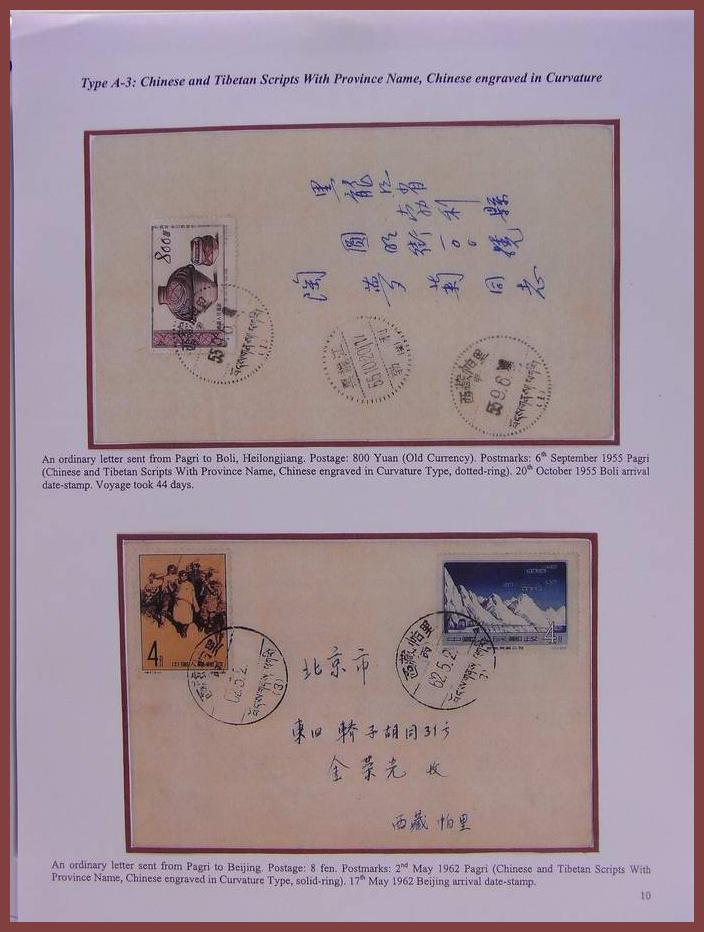 Type A-3: Chinese and Tibetan Scripts With Province Name, Chinese engraved in Curvature
黑龍江省
勃利縣
圓明街一〇六號
陶夢菊同志
800圓
55.9.6
55.10.20
西藏帕里
55.9.6
An ordinary letter sent from Pagri to Boli, Heilongjiang. Postage: 800 Yuan (Old Currency). Postmarks: 6th September 1955 Pagri
(Chinese and Tibetan Scripts With Province Name, Chinese engraved in Curvature Type, dotted-ring). 20th October 1955 Boli arrival
date-stamp. Voyage took 44 days.
4
中国人民邮政
62.5.2
(3)
西藏帕里
62.5.2
(3)
4
北京市
東四轎子胡同31号
金荣光 收
西藏帕里
An ordinary letter sent from Pagri to Beijing. Postage: 8 fen. Postmarks: 2nd May 1962 Pagri (Chinese and Tibetan Scripts With
Province Name, Chinese engraved in Curvature Type, solid-ring). 17th May 1962 Beijing arrival date-stamp.
10